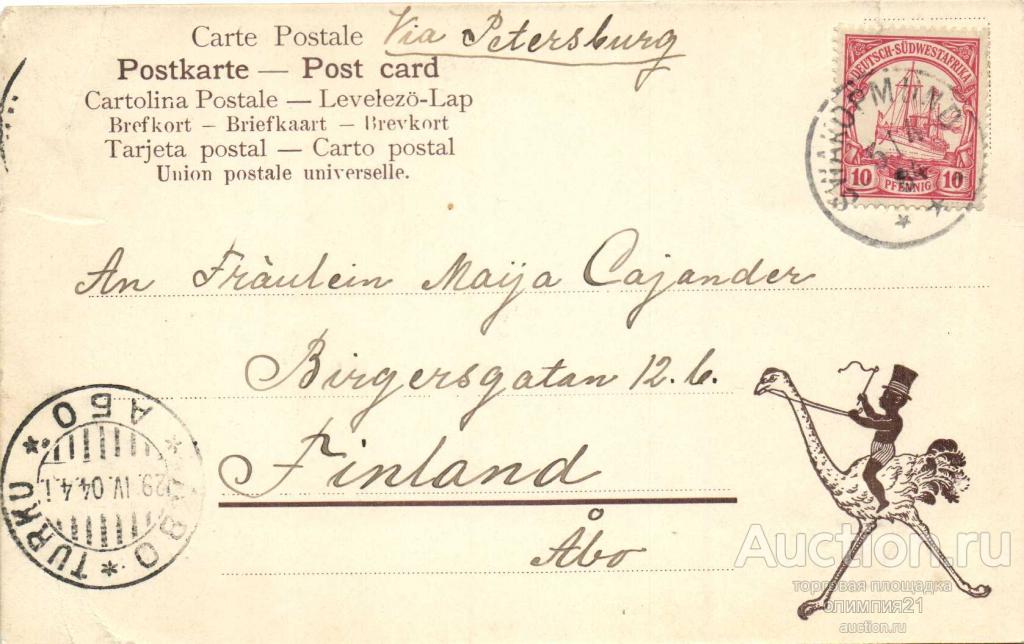 Carte Postale Via Petersburg
Postkarte — Post card
Cartolina Postale — Levelező-Lap
Brefkort — Briefkaart — Brevkort
Tarjeta postal — Carto postal
Union postale universelle.
DEUTSCH-SÜDWESTAFRIKA
10 PFENNIG 10
SWAKOPMUND
An Fräulein Maija Cajander
Birgersgatan 12. b.
Finland
Åbo
ÅBO * TURKU * АБО *
29. IV. 04. 4. i.
Auction.ru
торговая площадка
олимпия21
auction.ru